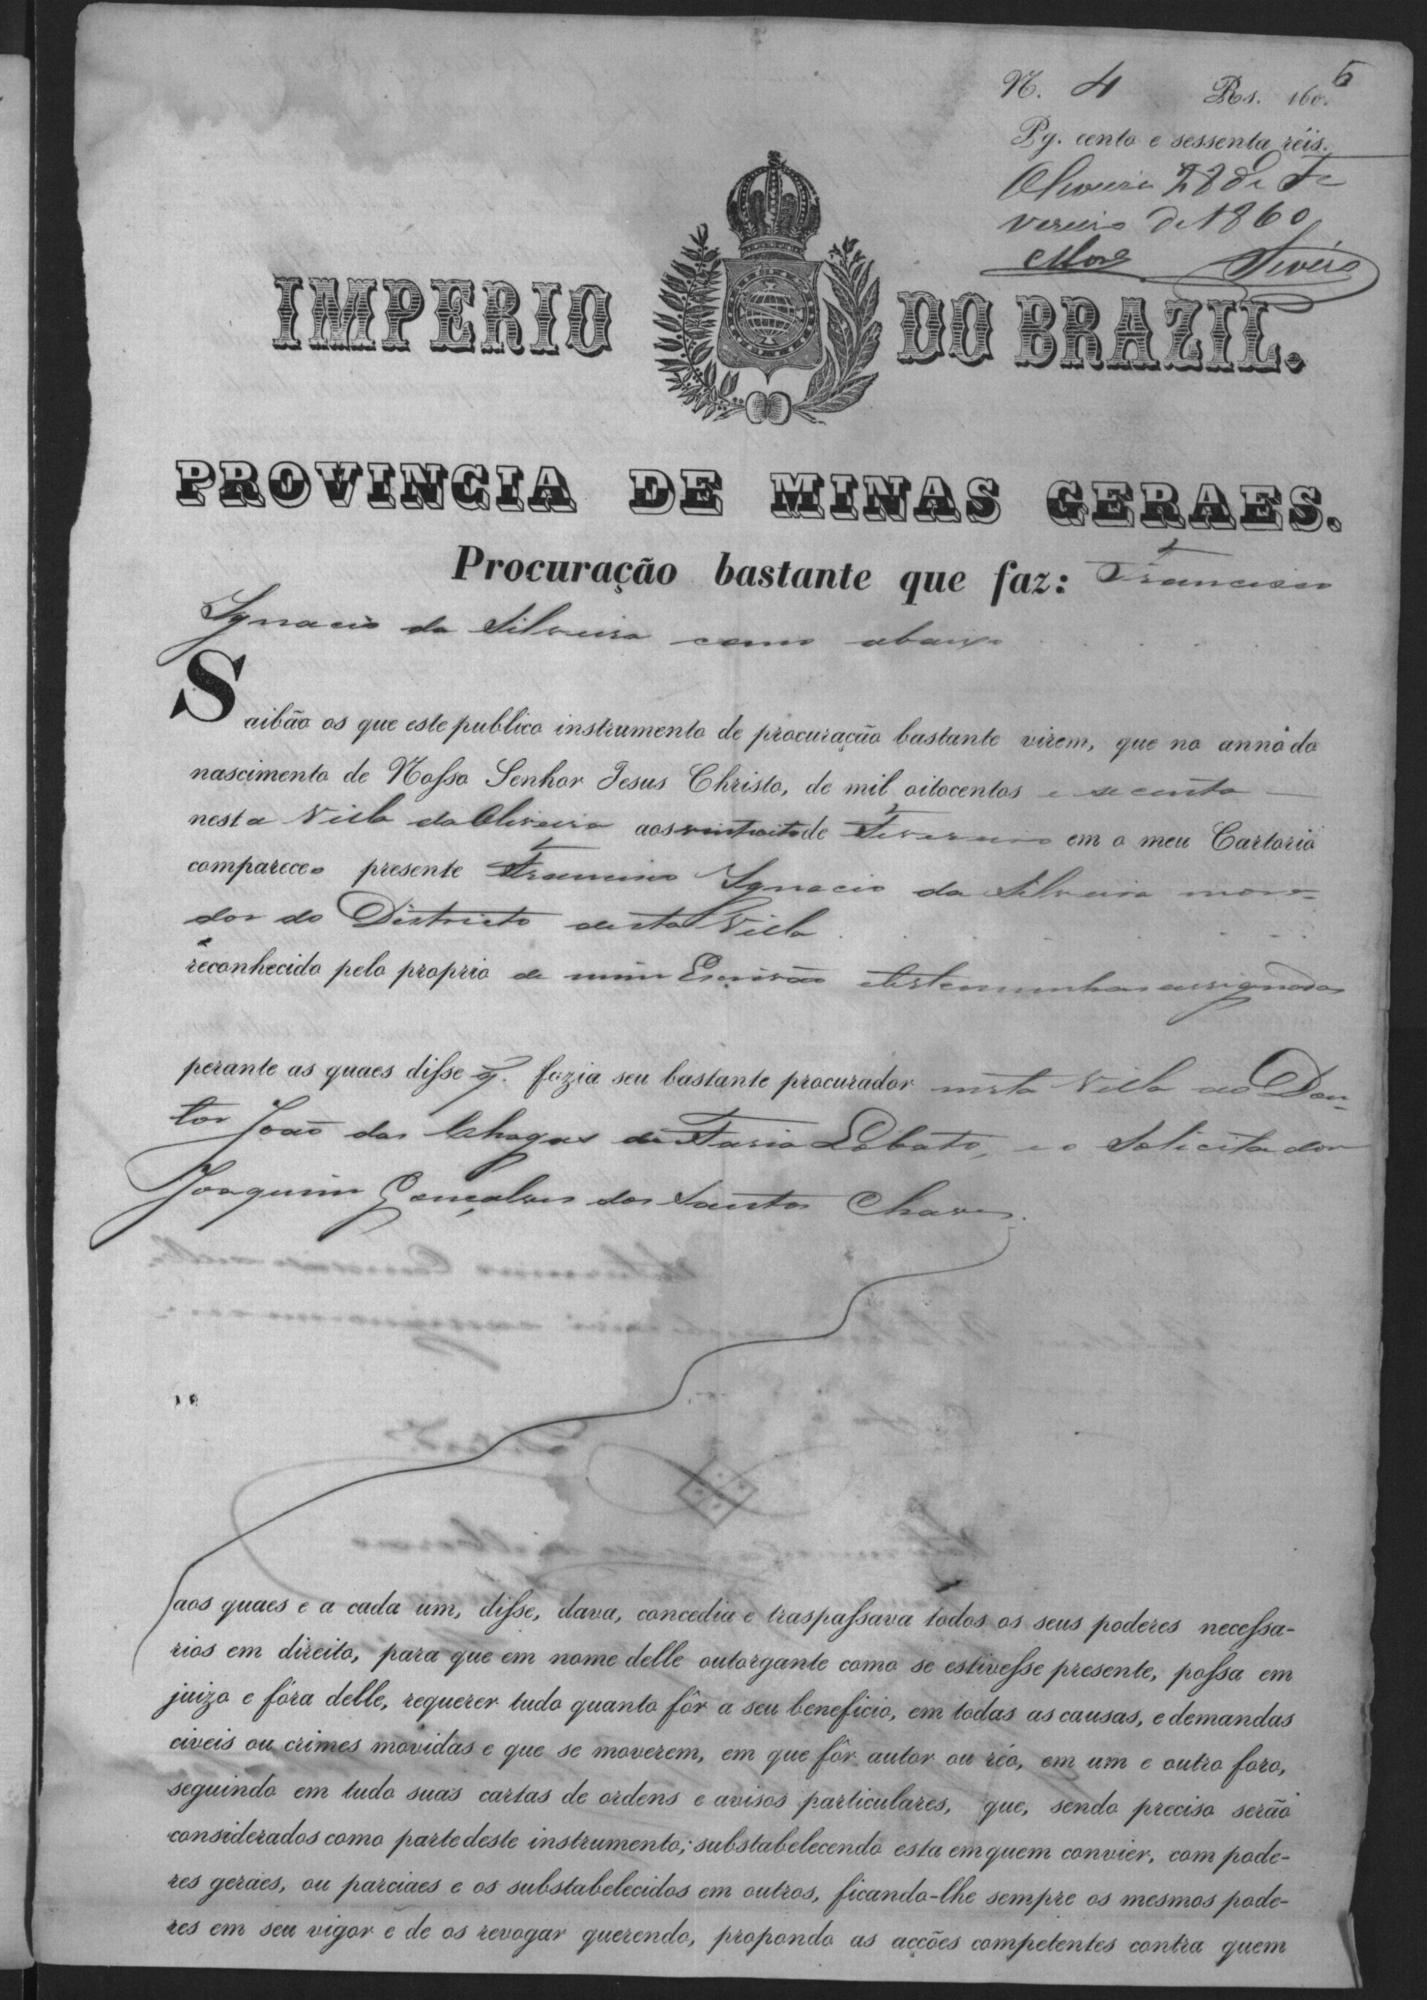 5
N. 4 Rs. 160.
Pg. cento e sessenta réis.
Oliveira 28 de Fe
vereiro de 1860
IMPERIO DO BRAZIL.
PROVINCIA DE MINAS GERAES.
Procuração bastante que faz: Francisco
Ignacio da Silveira como abaixo
Saibão os que este publico instrumento de procuração bastante virem, que no anno do
nascimento de Nosso Senhor Jesus Christo, de mil oitocentos e secenta
nesta Villa da Oliveira aos vinte oito de Fevereiro em o meu Cartorio
compareceo presente Francisco Ignacio da Silveira mora=
dor do Districto desta Villa
reconhecido pelo proprio de mim Escrivão e testemunhas assignadas
perante as quaes disse q. fazia seu bastante procurador nesta Villa ao Dou-
tor João das Chagas de Faria Lobato, e o Solicitador
Joaquim Gonçalves dos Santos Chaves.
aos quaes e a cada um, disse, dava, concedia e traspassava todos os seus poderes necessa-
rios em direito, para que em nome delle outorgante como se estivesse presente, possa em
juizo e fóra delle, requerer tudo quanto fôr a seu beneficio, em todas as causas, e demandas
civeis ou crimes movidas e que se moverem, em que fôr autor ou réo, em um e outro foro,
seguindo em tudo suas cartas de ordens e avisos particulares, que, sendo preciso serão
considerados como parte deste instrumento; substabelecendo esta em quem convier, com pode-
res geraes, ou parciaes e os substabelecidos em outros, ficando-lhe sempre os mesmos pode-
res em seu vigor e de os revogar querendo, propondo as acções competentes contra quem